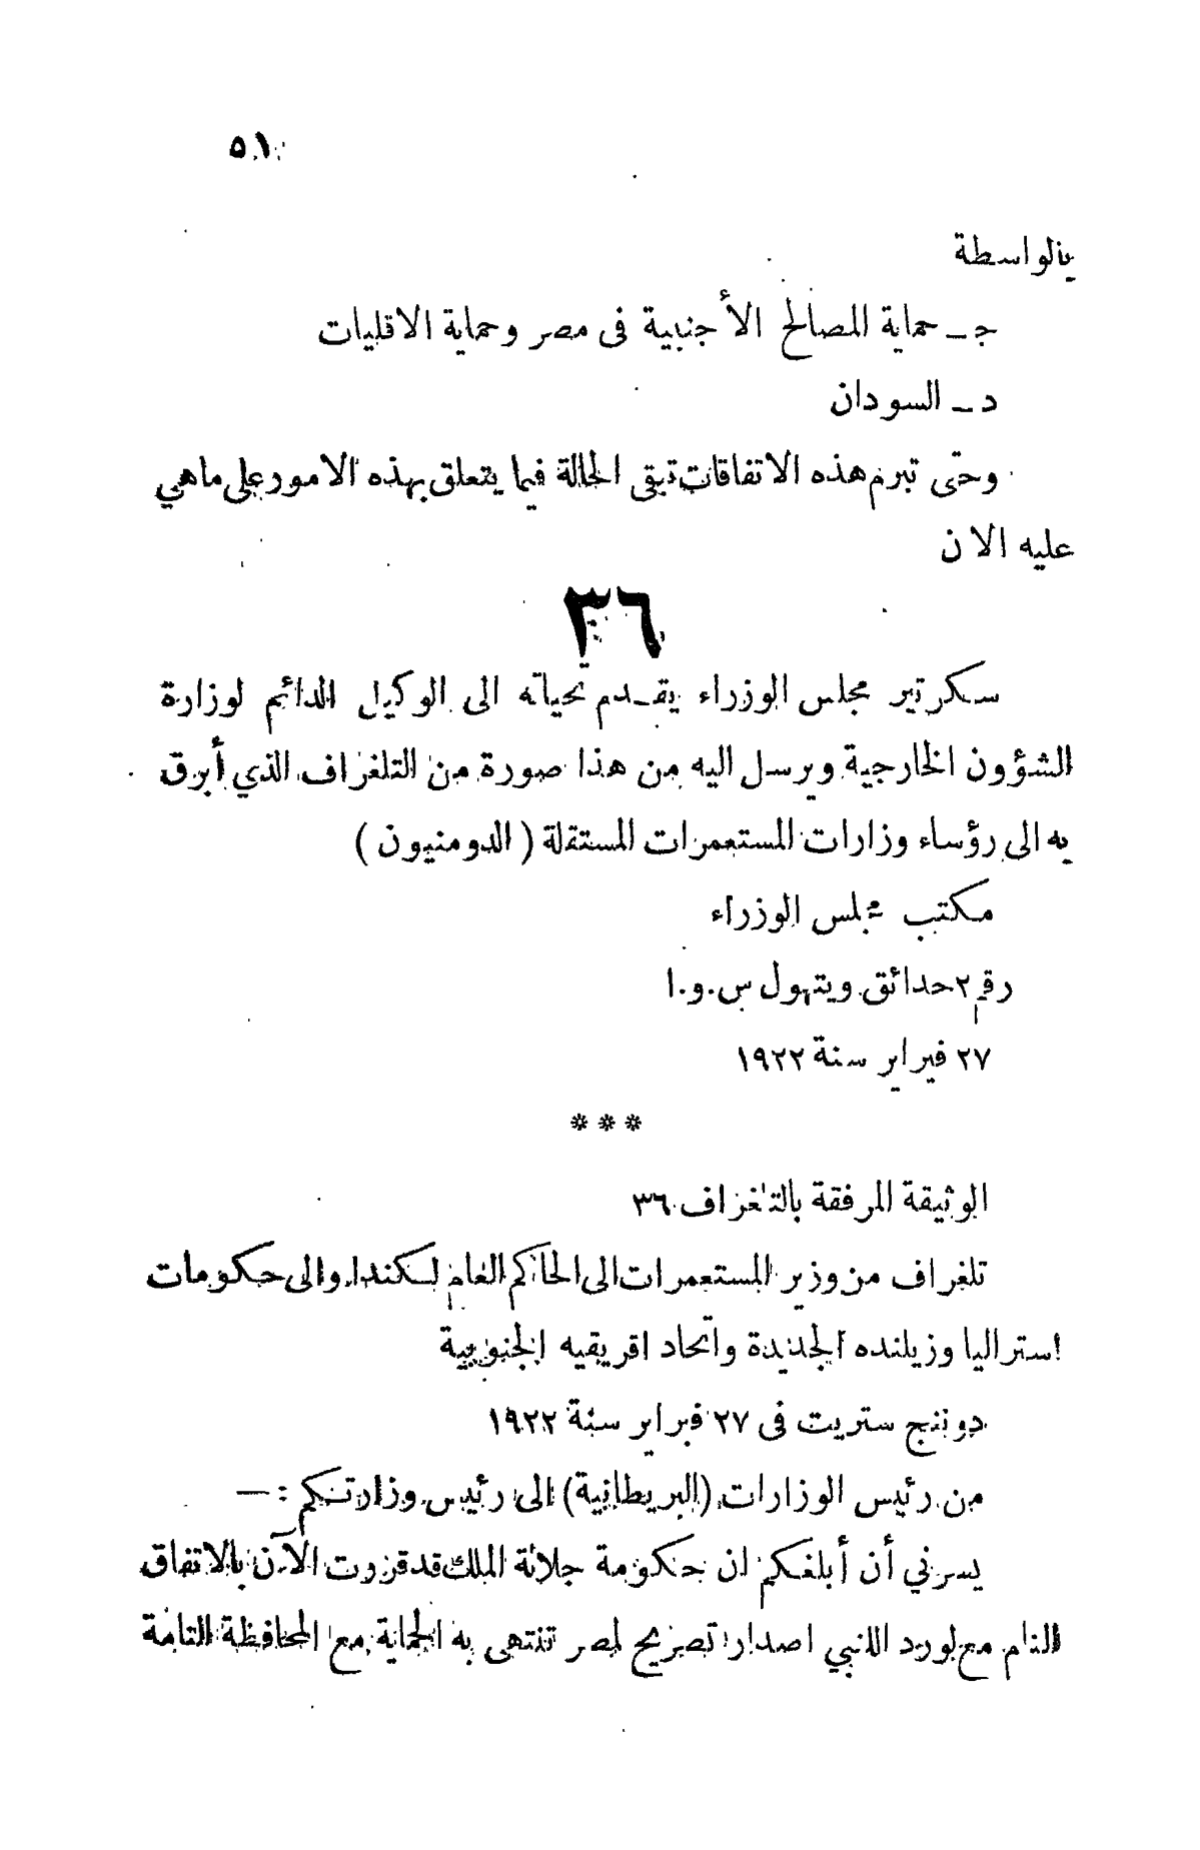 ٥١
بالواسطة
جـ ـ حماية المصالح الأجنبية فى مصر وحماية الاقليات
د ـ السودان
وحتى تبرم هذه الاتفاقات تبقى الحالة فيما يتعلق بهذه الامور على ماهي
عليه الان
٣٦
سكرتير مجلس الوزراء يقدم تحياته الى الوكيل الدائم لوزارة
الشؤون الخارجية ويرسل اليه من هذا صورة من التلغراف الذي أبرق
به الى رؤساء وزارات المستعمرات المستقلة ( الدومنيون )
مكتب مجلس الوزراء
رقم ٢ حدائق ويتهول س.و.ا
٢٧ فبراير سنة ١٩٢٢
* * *
الوثيقة المرفقة بالتلغراف ٣٦
تلغراف من وزير المستعمرات الى الحاكم العام لكندا والى حكومات
استراليا وزيلنده الجديدة واتحاد افريقيه الجنوبية
دوننج ستريت فى ٢٧ فبراير سنة ١٩٢٢
من رئيس الوزارات (البريطانية) الى رئيس وزارتكم : —
يسرني أن أبلغكم ان حكومة جلالة الملك قد قررت الآن بالاتفاق
التام مع لورد اللنبي اصدار تصريح لمصر تنتهى به الحماية مع المحافظة التامة